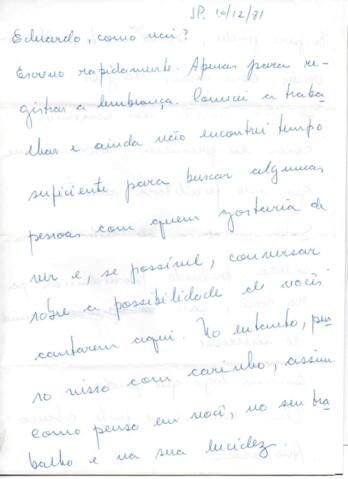 SP. 10/12/81
Eduardo, como vai?
Escrevo rapidamente. Apenas para re-
gistrar a lembrança. Comecei a traba-
lhar e ainda não encontrei tempo
suficiente para buscar algumas
pessoas com quem gostaria de
ver e, se possível, conversar
sobre a possibilidade de vocês
cantarem aqui. No entanto, pen
so nisso com carinho, assim
como penso em você, no seu tra
balho e na sua lucidez.